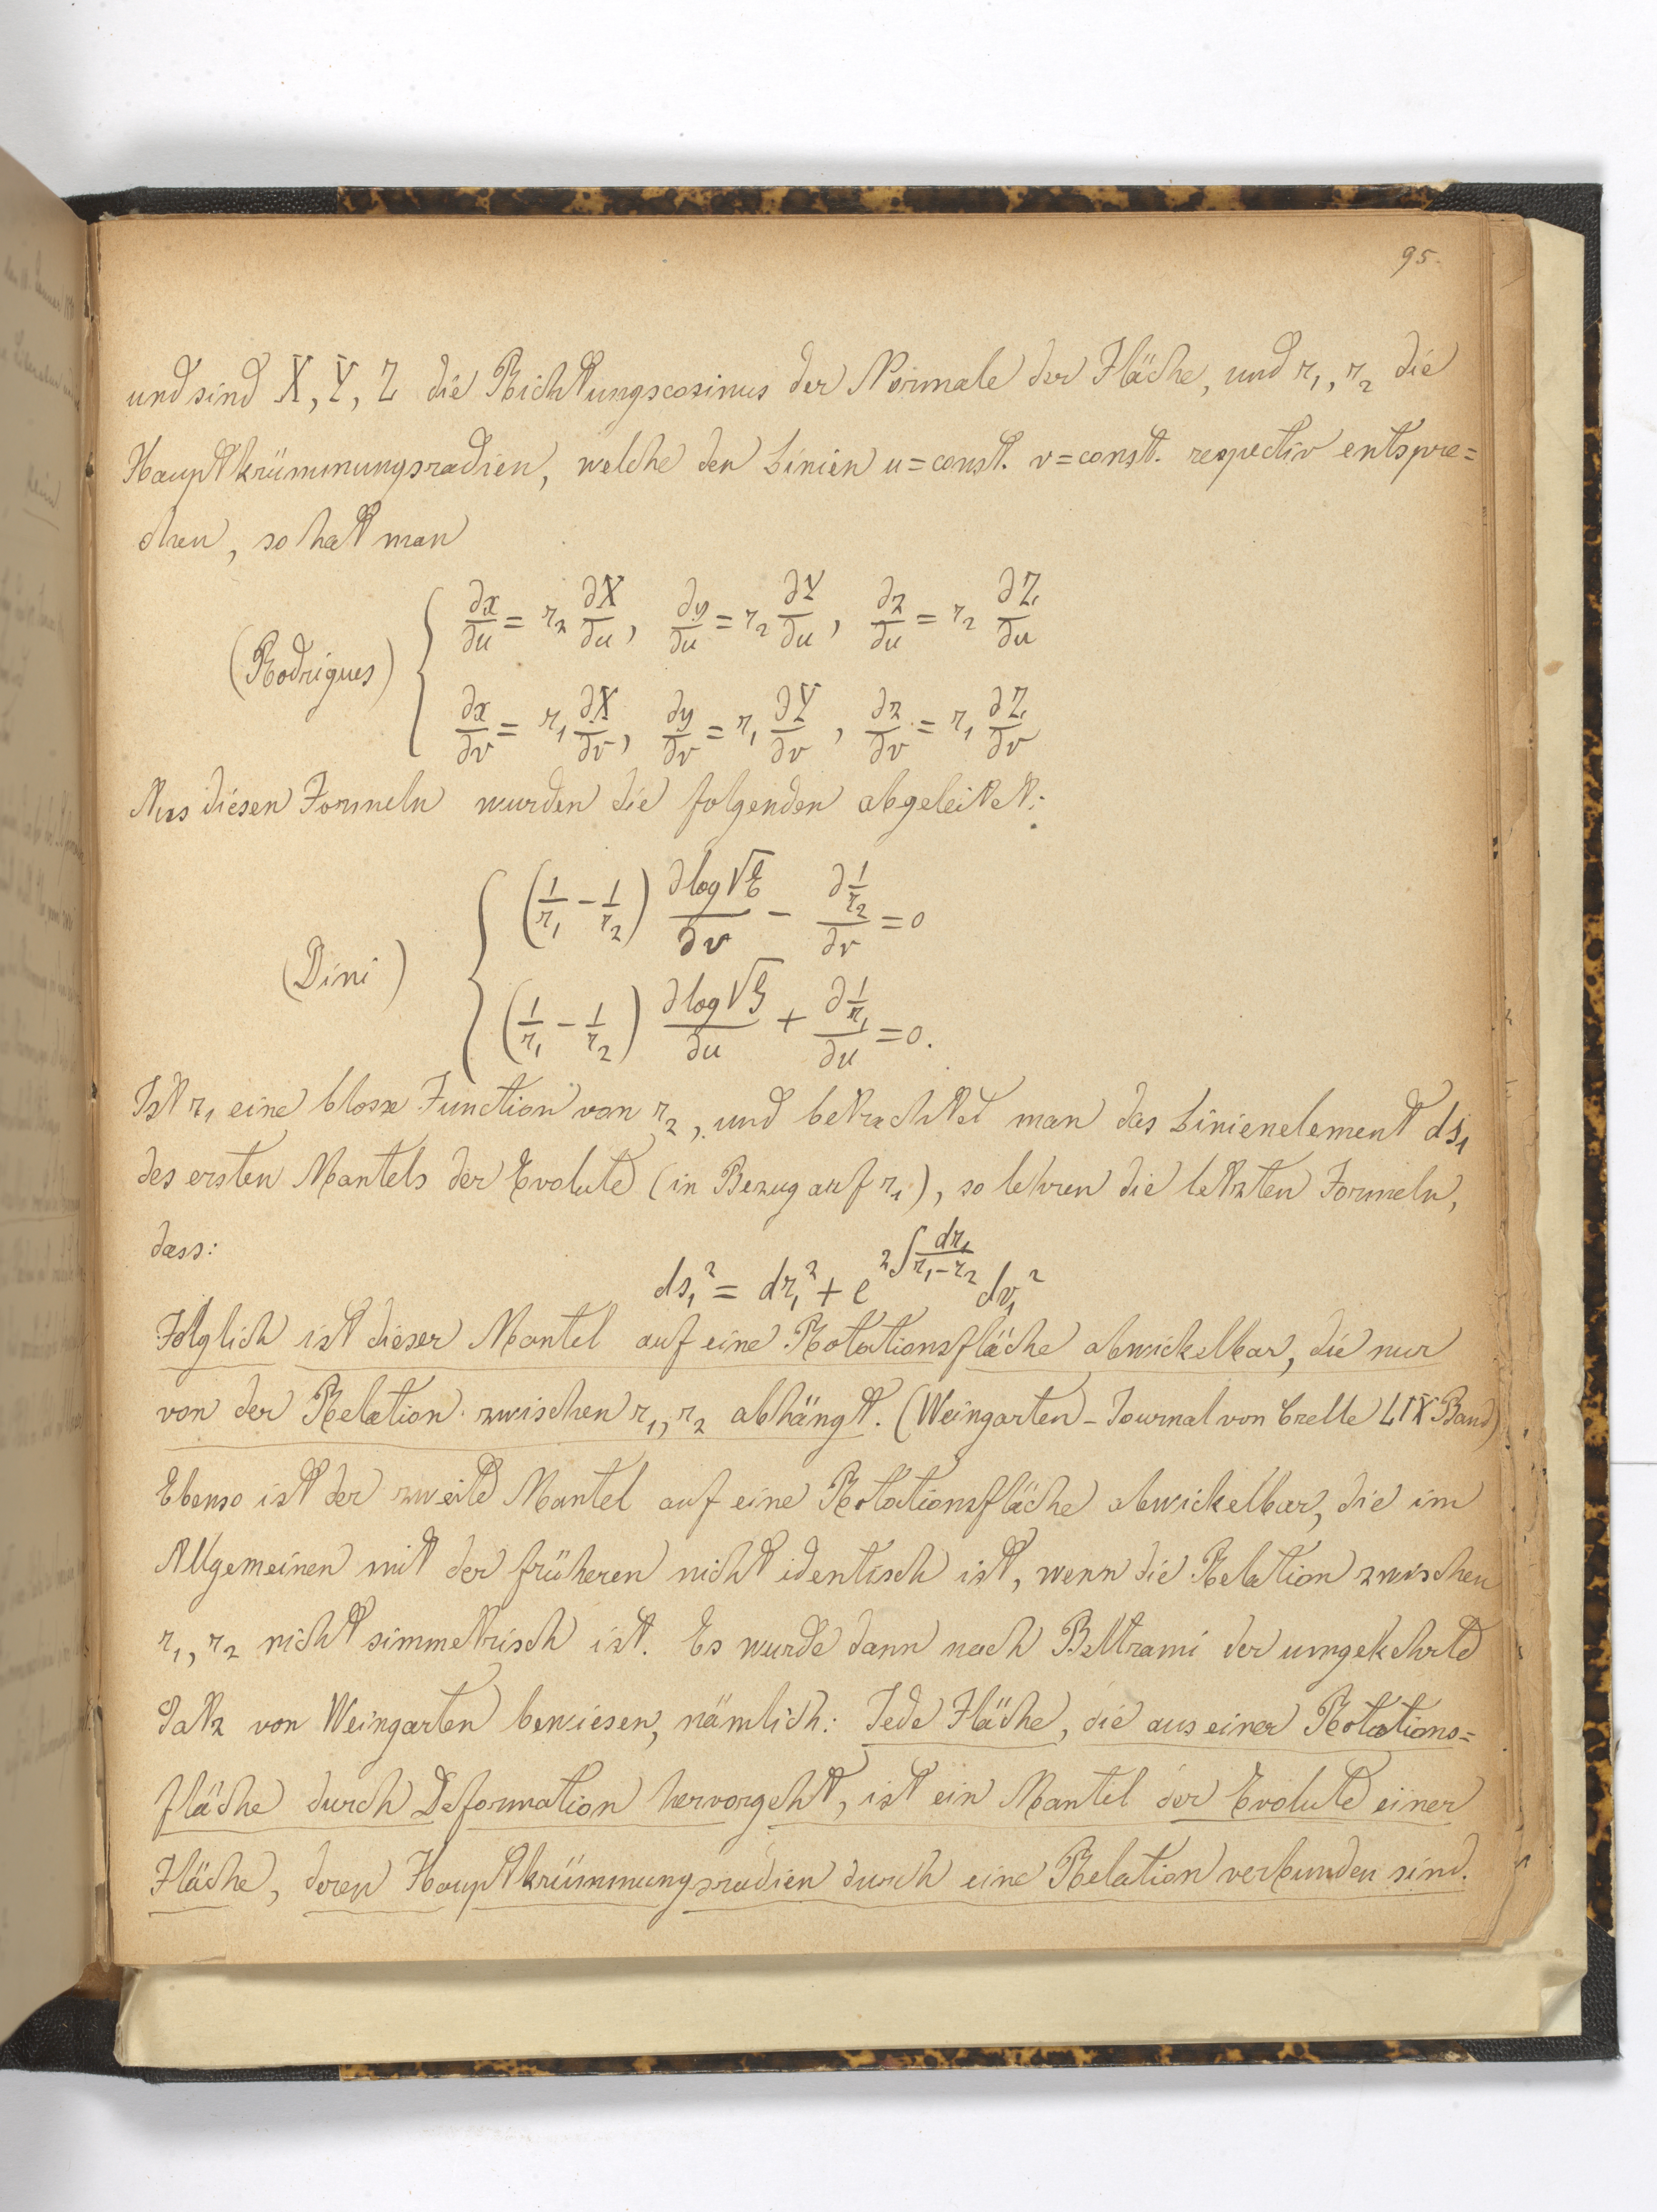 95.
und sind X, Y, Z die Richtungscosinus der Normale der Fläche, und r₁, r₂ die
Hauptkrümmungsradien, welche den Linien u=const. v=const. respectiv entspre=
chen, so hat man
(Rodrigues) { ∂x/∂u = r₂ ∂X/∂u, ∂y/∂u = r₂ ∂Y/∂u, ∂z/∂u = r₂ ∂Z/∂u
∂x/∂v = r₁ ∂X/∂v, ∂y/∂v = r₁ ∂Y/∂v, ∂z/∂v = r₁ ∂Z/∂v
Aus diesen Formeln wurden die folgenden abgeleitet:
(Dini) { (1/r₁ − 1/r₂) ∂log√E/∂v − ∂(1/r₂)/∂v = 0
(1/r₁ − 1/r₂) ∂log√G/∂u + ∂(1/r₁)/∂u = 0.
Ist r₁ eine blosse Function von r₂, und betrachtet man das Linienelement ds₁
des ersten Mantels der Evolute (in Bezug auf r₁), so lehren die letzten Formeln,
dass:
ds₁² = dr₁² + e^(2∫dr₁/(r₁−r₂)) dv₁²
Folglich ist dieser Mantel auf eine Rotationsfläche abwickelbar, die nur
von der Relation zwischen r₁, r₂ abhängt. (Weingarten - Journal von Crelle LIX Band)
Ebenso ist der zweite Mantel auf eine Rotationsfläche abwickelbar, die im
Allgemeinen mit der früheren nicht identisch ist, wenn die Relation zwischen
r₁, r₂ nicht simmetrisch ist. Es wurde dann nach Beltrami der umgekehrte
Satz von Weingarten bewiesen, nämlich: Jede Fläche, die aus einer Rotations=
fläche durch Deformation hervorgeht, ist ein Mantel der Evolute einer
Fläche, deren Hauptkrümmungsradien durch eine Relation verbunden sind.